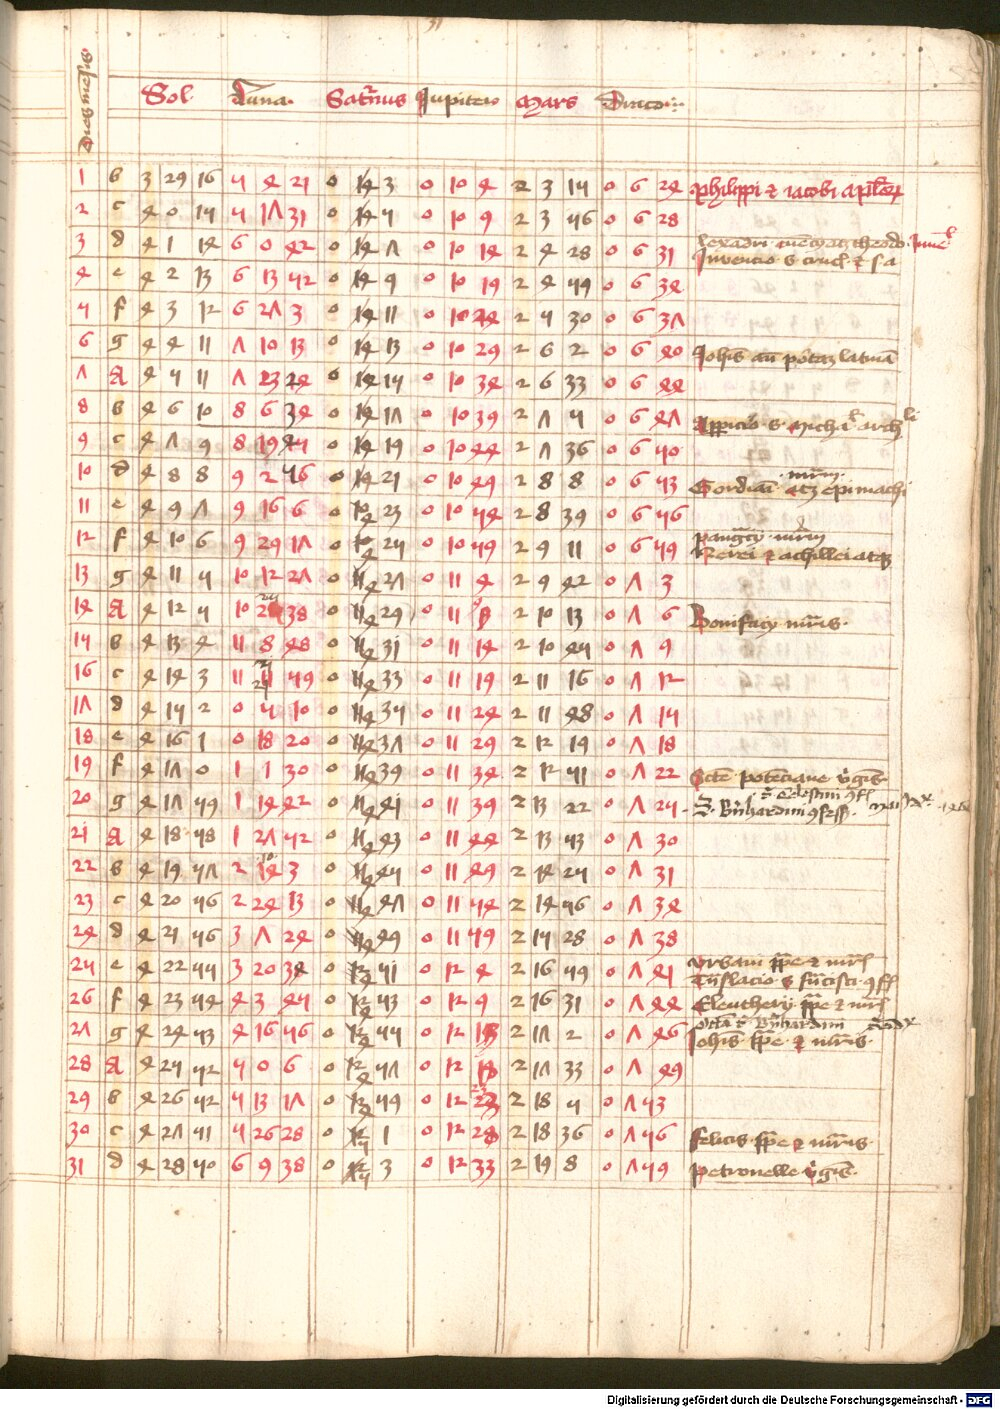 Dies mensis
Sol Luna Saturnus Jupiter Mars Draco
1 b 3 29 16 5 4 21 0 14 3 0 10 4 2 3 15 0 6 24 Philippi et iacobi aplorum
2 c 4 0 15 5 17 31 0 14 5 0 10 9 2 3 56 0 6 28
3 d 4 1 14 6 0 42 0 14 7 0 10 14 2 4 28 0 6 31 theodo Inventio s crucis
4 e 4 2 13 6 13 52 0 14 9 0 10 19 2 4 59 0 6 34
5 f 4 3 12 6 27 3 0 14 11 0 10 24 2 5 30 0 6 37
6 g 4 4 11 7 10 13 0 14 13 0 10 29 2 6 2 0 6 40 Johis an portam latinam
7 A 4 5 11 7 23 24 0 14 15 0 10 34 2 6 33 0 6 44
8 b 4 6 10 8 6 34 0 14 17 0 10 39 2 7 5 0 6 47 Appicio s michael archli
9 c 4 7 9 8 19 45 0 14 19 0 10 44 2 7 36 0 6 50
10 d 4 8 8 9 2 56 0 14 21 0 10 49 2 8 8 0 6 53 Gordiani atque epimachi mrum
11 e 4 9 7 9 16 6 0 10 4 23 0 10 54 2 8 39 0 6 56
12 f 4 10 6 9 29 17 0 10 4 25 0 10 59 2 9 11 0 6 59 pangracy mrum Nerei et achillei atque
13 g 4 11 5 10 12 27 0 11 4 27 0 11 4 2 9 42 0 7 3
14 A 4 12 5 10 25 38 0 11 4 29 0 11 9 2 10 13 0 7 6 Bonifacy mris
15 b 4 13 4 11 8 48 0 11 4 31 0 11 14 2 10 45 0 7 9
16 c 4 14 3 11 21 59 0 11 4 33 0 11 19 2 11 16 0 7 12
17 d 4 15 2 0 5 10 0 11 4 35 0 11 24 2 11 48 0 7 15
18 e 4 16 1 0 18 20 0 11 4 37 0 11 29 2 12 19 0 7 18
19 f 4 17 0 1 1 30 0 11 4 39 0 11 34 2 12 51 0 7 22 Scte potenciane vgis
20 g 4 17 59 1 14 42 0 11 4 41 0 11 39 2 13 22 0 7 25 S. Bernhardini 9fess
21 A 4 18 58 1 27 52 0 11 4 43 0 11 44 2 13 53 0 7 30
22 b 4 19 57 2 10 3 0 11 4 45 0 11 49 2 14 25 0 7 31
23 c 4 20 56 2 24 13 0 11 4 47 0 11 54 2 14 56 0 7 34
24 d 4 21 56 3 7 24 0 11 4 49 0 11 59 2 15 28 0 7 38
25 e 4 22 55 3 20 34 0 12 4 51 0 12 4 2 16 59 0 7 41 Urbani ppe et mris Tnslacio s fncisci 9ff
26 f 4 23 54 4 3 45 0 12 4 53 0 12 9 2 16 31 0 7 44 Eleuthery ppe et mris
27 g 4 24 53 4 16 56 0 12 4 55 0 12 13 2 17 2 0 7 46 octa s Bernhardini Johis ppe et mris
28 A 4 25 52 5 0 6 0 12 4 57 0 12 18 2 17 33 0 7 49
29 b 4 26 52 5 13 17 0 12 4 59 0 12 23 2 18 5 0 7 53
30 c 4 27 51 5 26 28 0 12 5 1 0 12 28 2 18 36 0 7 56 felicis ppe et mris
31 d 4 28 50 6 9 38 0 12 5 3 0 12 33 2 19 8 0 7 59 Petronelle vgis
Digitalisierung gefördert durch die Deutsche Forschungsgemeinschaft - DFG